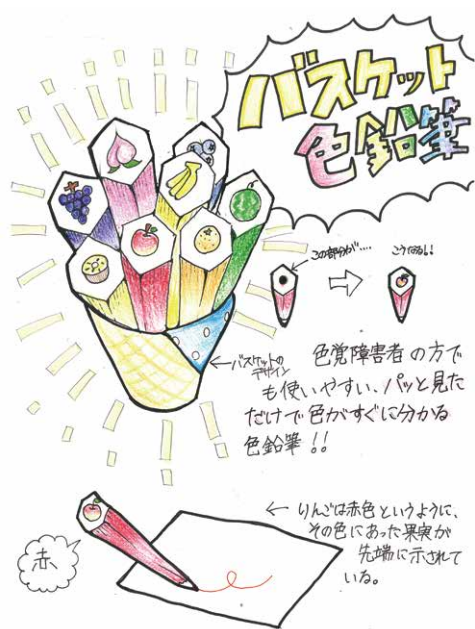 バスケット
色鉛筆
この部分が‥‥
こうではない!
←バスケットの
デザイン
色覚障害者の方で
も使いやすい、パッと見た
だけで色がすぐに分かる
色鉛筆!!
赤
← りんごは赤色というように、
その色にあった果実が
先端に示されて
いる。